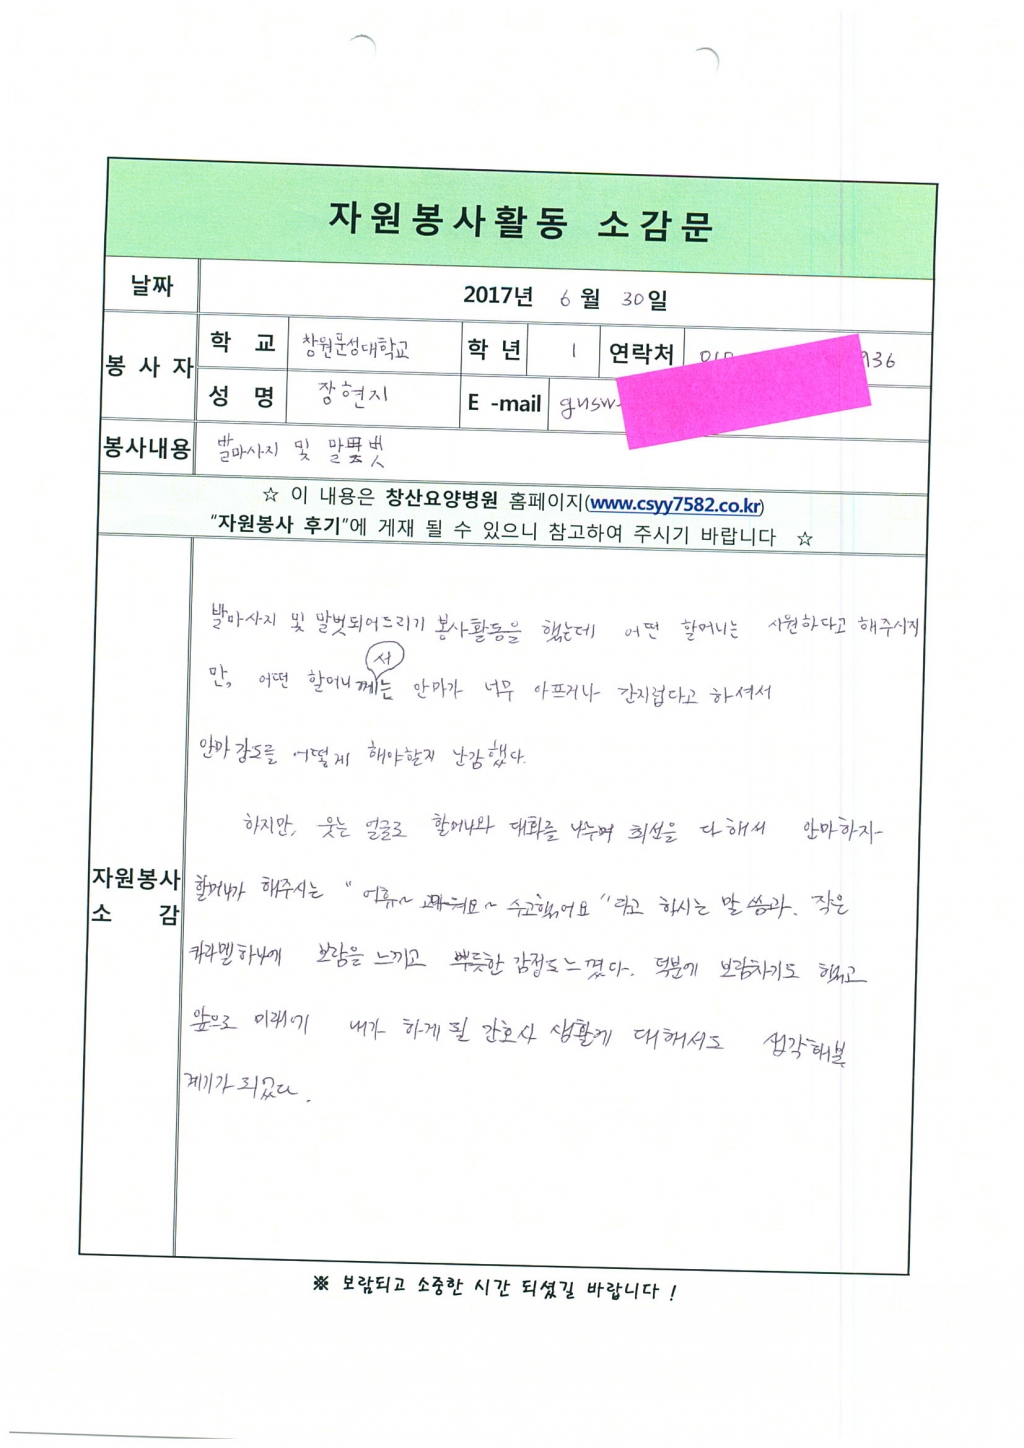 자원봉사활동 소감문
날짜 2017년 6월 30일
봉사자 학교 창원문성대학교 학년 1 연락처 010 936
성명 장현지 E-mail gusw
봉사내용 발마사지 및 말벗
☆ 이 내용은 창산요양병원 홈페이지(www.csyy7582.co.kr)
“자원봉사 후기”에 게재 될 수 있으니 참고하여 주시기 바랍니다 ☆
자원봉사 소감
발마사지 및 말벗되어드리기 봉사활동을 했는데 어떤 할머니는 시원하다고 해주시지
만, 어떤 할머니께서는 안마가 너무 아프거나 간지럽다고 하셔서
안마강도를 어떻게 해야할지 난감했다.
하지만, 웃는 얼굴로 할머니와 대화를 나누며 최선을 다해서 안마하자
할머니가 해주시는 “어휴~ 고마워요~ 수고했어요”라고 하시는 말씀과. 작은
카라멜하나에 보람을 느끼고 뿌듯한 감정도 느꼈다. 덕분에 보람차기도 했고
앞으로 미래에 내가 하게될 간호사 생활에 대해서도 생각해볼
계기가 되었다.
※ 보람되고 소중한 시간 되셨길 바랍니다 !